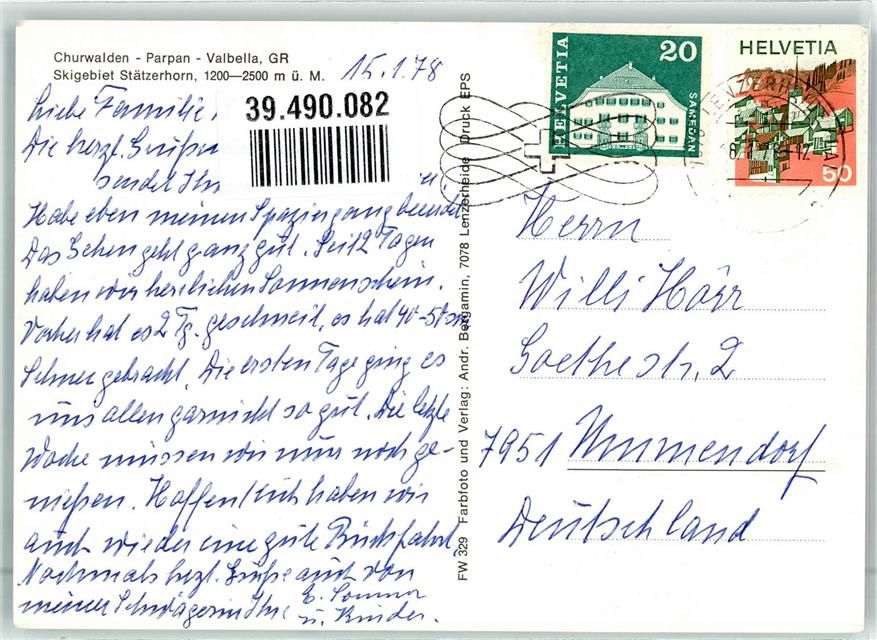 Churwalden - Parpan - Valbella, GR
Skigebiet Stätzerhorn, 1200—2500 m ü. M.
15.1.78
Liebe Familie
39.490.082
Die herzl. Grüße
sendet Ihnen
Habe eben meinen Spaziergang beendet
Das Gehen geht ganz gut. Seit 2 Tagen
haben wir herrlichen Sonnenschein.
Vorher hat es 2 Tg. geschneit, es hat 40-50 cm
Schnee gebracht. Die ersten Tage ging es
uns allen garnicht so gut. Die letzte
Woche müssen wir nun noch ge-
nießen. Hoffentlich haben wir
auch wieder eine gute Rückfahrt.
Nochmals herzl. Grüße auch von
meiner Schwägerin Ihre E.
u. Kinder.
FW 329 Farbfoto und Verlag: Andr. Bergamin, 7078 Lenzerheide Druck EPS
HELVETIA
20
SAMEDAN
HELVETIA
50
LENZERHEIDE
Herrn
Willi Hörr
Goethestr. 2
7951 Ummendorf
Deutschland